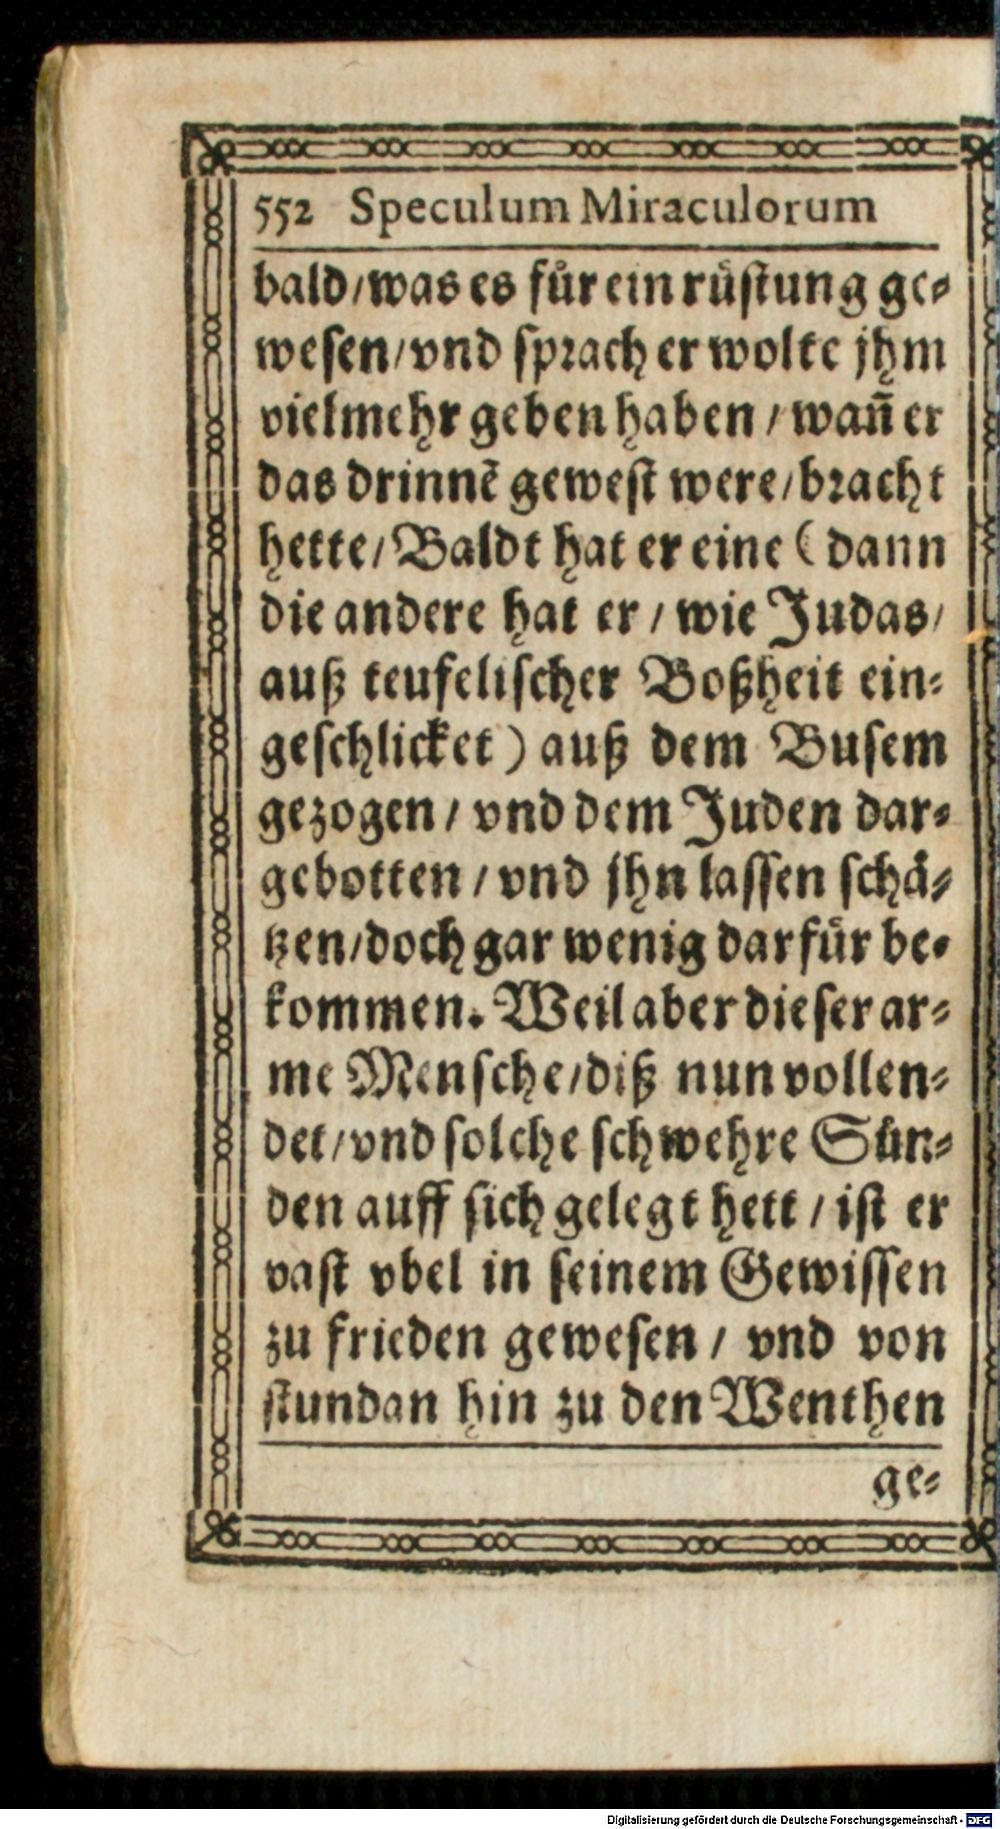 552 Speculum Miraculorum
bald/was es fuͤr ein ruͤstung ge⸗
wesen/vnd sprach er wolte jhm
vielmehr geben haben / wañ er
das drinnẽ gewest were/bracht
hette/Baldt hat er eine (dann
die andere hat er / wie Judas/
auß teufelischer Boßheit ein⸗
geschlicket) auß dem Busem
gezogen / vnd dem Juden dar⸗
gebotten / vnd jhn lassen schaͤ⸗
tzen/doch gar wenig darfuͤr be⸗
kommen. Weil aber dieser ar⸗
me Mensche/diß nun vollen⸗
det/vnd solche schwehre Suͤn⸗
den auff sich gelegt hett / ist er
vast vbel in seinem Gewissen
zu frieden gewesen / vnd von
stundan hin zu den Wenthen
ge⸗
Digitalisierung gefördert durch die Deutsche Forschungsgemeinschaft - DFG